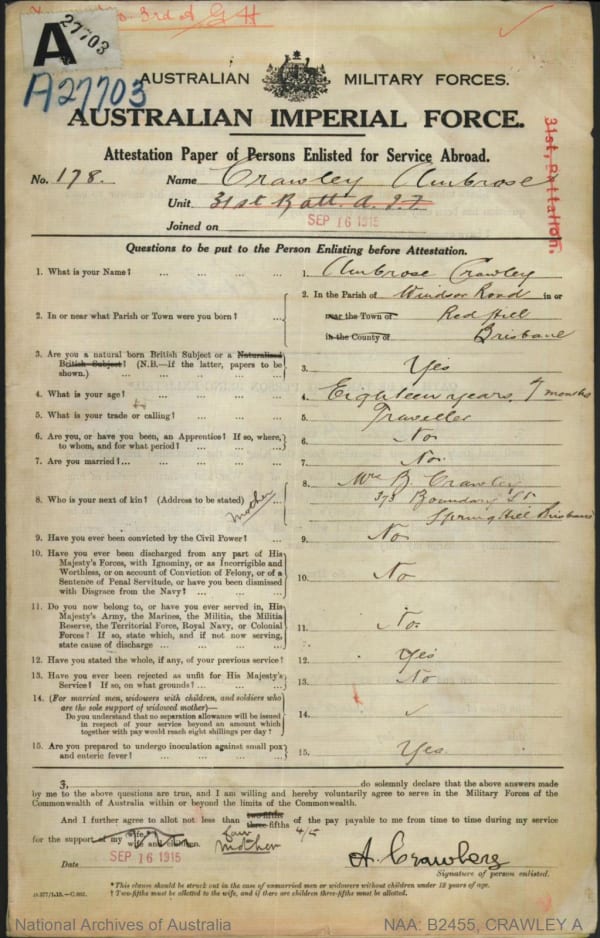 to 3rd A G H
A 27703
A27703
AUSTRALIAN MILITARY FORCES.
AUSTRALIAN IMPERIAL FORCE.
Attestation Paper of Persons Enlisted for Service Abroad.
31st, Battalion.
No. 178. Name Crawley Ambrose
Unit 31st Batt. A.I.F.
Joined on SEP 16 1915
Questions to be put to the Person Enlisting before Attestation.
1. What is your Name? ... ... ... ... 1. Ambrose Crawley
2. In or near what Parish or Town were you born? ... 2. In the Parish of Windsor Road in or
near the Town of Red Hill
in the County of Brisbane
3. Are you a natural born British Subject or a Naturalised
British Subject? (N.B.—If the latter, papers to be
shown.) ... ... ... ... ... 3. Yes
4. What is your age? ... ... ... ... 4. Eighteen years 7 months
5. What is your trade or calling? ... ... ... 5. Traveller
6. Are you, or have you been, an Apprentice? If so, where,
to whom, and for what period? ... ... ... 6. No
7. Are you married? ... ... ... ... ... 7. No
8. Who is your next of kin? (Address to be stated) ... 8. Mrs B. Crawley
mother
373 Boundary St
Spring Hill Brisbane
9. Have you ever been convicted by the Civil Power? ... 9. No
10. Have you ever been discharged from any part of His
Majesty's Forces, with Ignominy, or as Incorrigible and
Worthless, or on account of Conviction of Felony, or of a
Sentence of Penal Servitude, or have you been dismissed
with Disgrace from the Navy? ... ... ... 10. No
11. Do you now belong to, or have you ever served in, His
Majesty's Army, the Marines, the Militia, the Militia
Reserve, the Territorial Force, Royal Navy, or Colonial
Forces? If so, state which, and if not now serving,
state cause of discharge ... ... ... ... 11. No
12. Have you stated the whole, if any, of your previous service? 12. Yes
13. Have you ever been rejected as unfit for His Majesty's
Service? If so, on what grounds? ... ... ... 13. No
14. (For married men, widowers with children, and soldiers who
are the sole support of widowed mother)—
Do you understand that no separation allowance will be issued
in respect of your service beyond an amount which
together with pay would reach eight shillings per day? 14. ✓
15. Are you prepared to undergo inoculation against small pox
and enteric fever? ... ... ... ... 15. Yes
I, do solemnly declare that the above answers made
by me to the above questions are true, and I am willing and hereby voluntarily agree to serve in the Military Forces of the
Commonwealth of Australia within or beyond the limits of the Commonwealth.
And I further agree to allot not less than two-fifths
three-fifths 4/5 of the pay payable to me from time to time during my service
for the support of my wife
wife and children. mother
Date SEP 16 1915
Signature of person enlisted.
* This clause should be struck out in the case of unmarried men or widowers without children under 18 years of age.
† Two-fifths must be allotted to the wife, and if there are children three-fifths must be allotted.
D.277/1.15.—C.602.
National Archives of Australia
NAA: B2455, CRAWLEY A